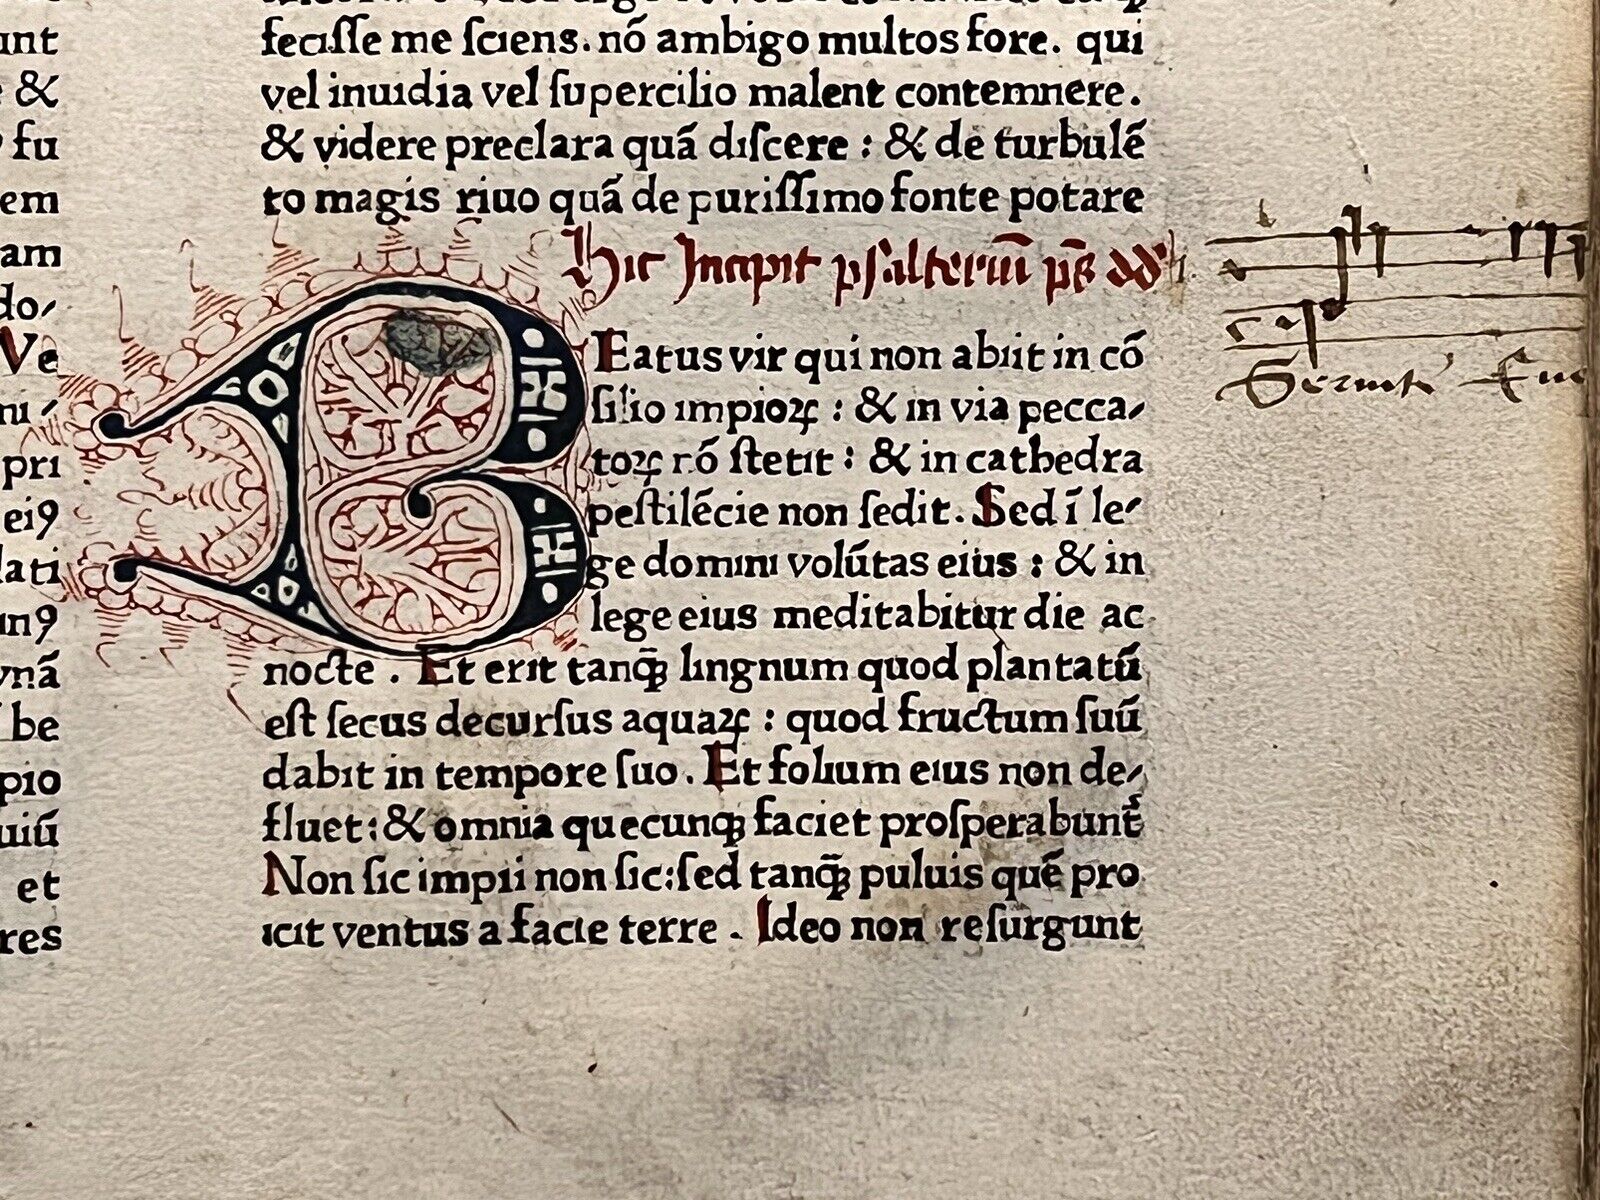 unt
&
fu
em
am
do⸗
Ve
ni⸗
pri
eiꝰ
lati
unꝰ
ynā
be
pio
uiū
et
res
feciſſe me ſciens. nō ambigo multos fore. qui
vel inuidia vel ſupercilio malent contemnere.
& videre preclara quā diſcere : & de turbulē
to magis riuo quā de puriſſimo fonte potare
Hic Incipit pſalteriū
BEatus vir qui non abiit in cō
ſilio impioꝝ : & in via pecca⸗
toꝝ nō ſtetit : & in cathedra
peſtilēcie non ſedit. Sed ī le⸗
ge domini volūtas eius : & in
lege eius meditabitur die ac
nocte . Et erit tanq̄ꝫ lingnum quod plantatū
eſt ſecus decurſus aquaꝝ : quod fructum ſuū
dabit in tempore ſuo. Et folium eius non de⸗
fluet : & omnia quecunqꝫ faciet proſperabunt᷑
Non ſic impii non ſic : ſed tanq̄ꝫ puluis quē pro
icit ventus a facie terre . Ideo non reſurgunt